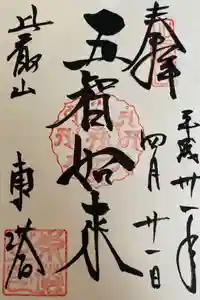 奉拝
平成廿一年
四月廿一日
五智如来
比叡山
東塔